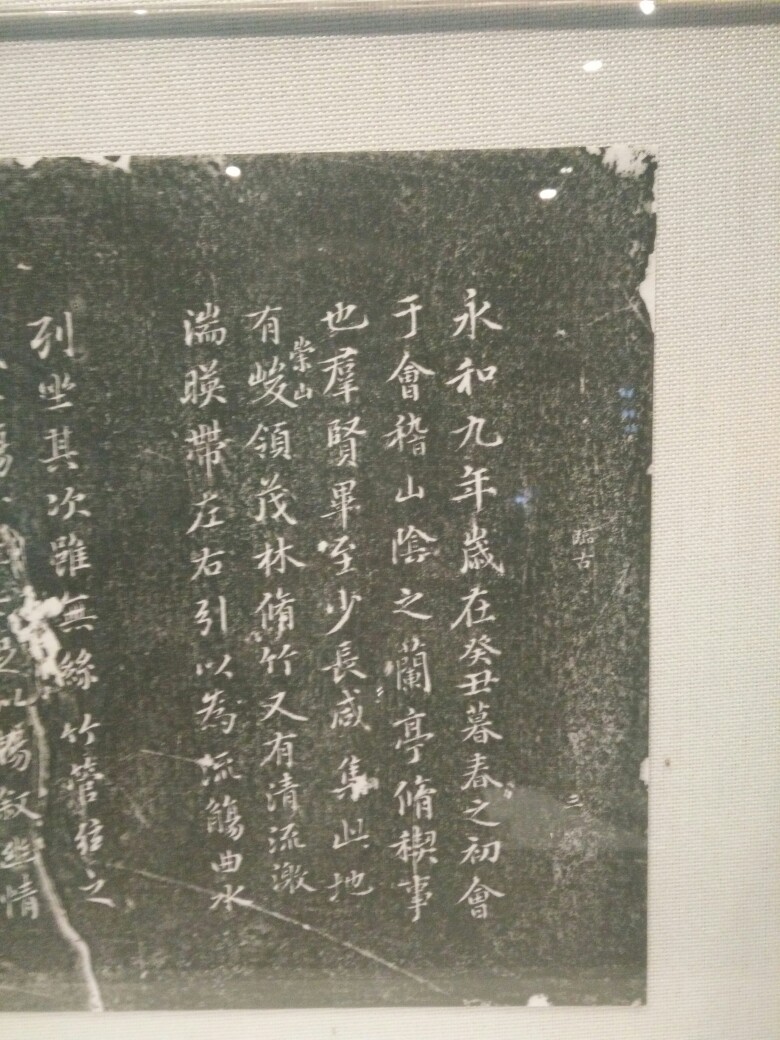 臨古
三
永和九年歲在癸丑暮春之初會
于會稽山陰之蘭亭脩稧事
也羣賢畢至少長咸集此地
有崇山峻領茂林脩竹又有清流激
湍暎帶左右引以為流觴曲水
列坐其次雖無絲竹管弦之
足以暢敘幽情